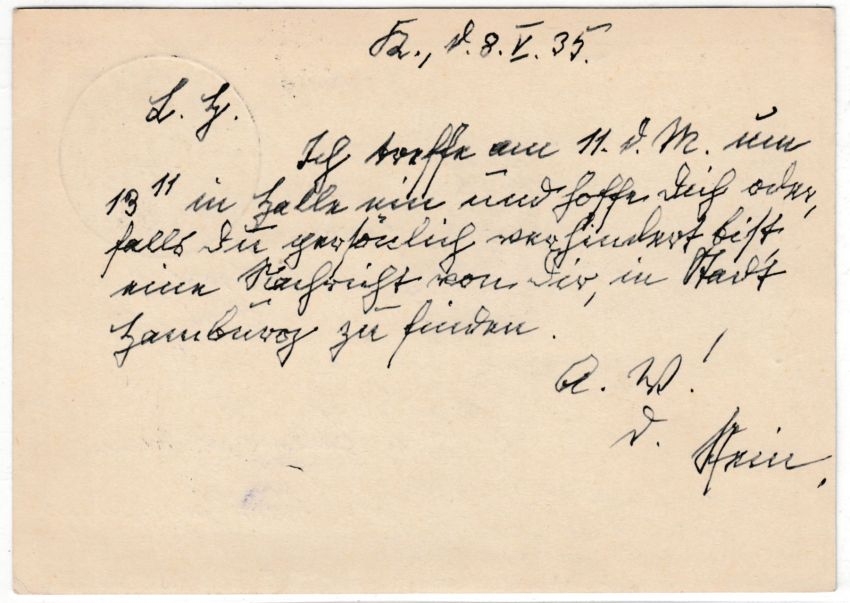 d. 8. V. 35.
L. H.
Ich treffe am 11. d. M. um
13 11 in Halle ein und hoffe Dich oder,
falls Du persönlich verhindert bist,
eine Nachricht von Dir, in Stadt
Hamburg zu finden.
A. W.!
D. Stein.